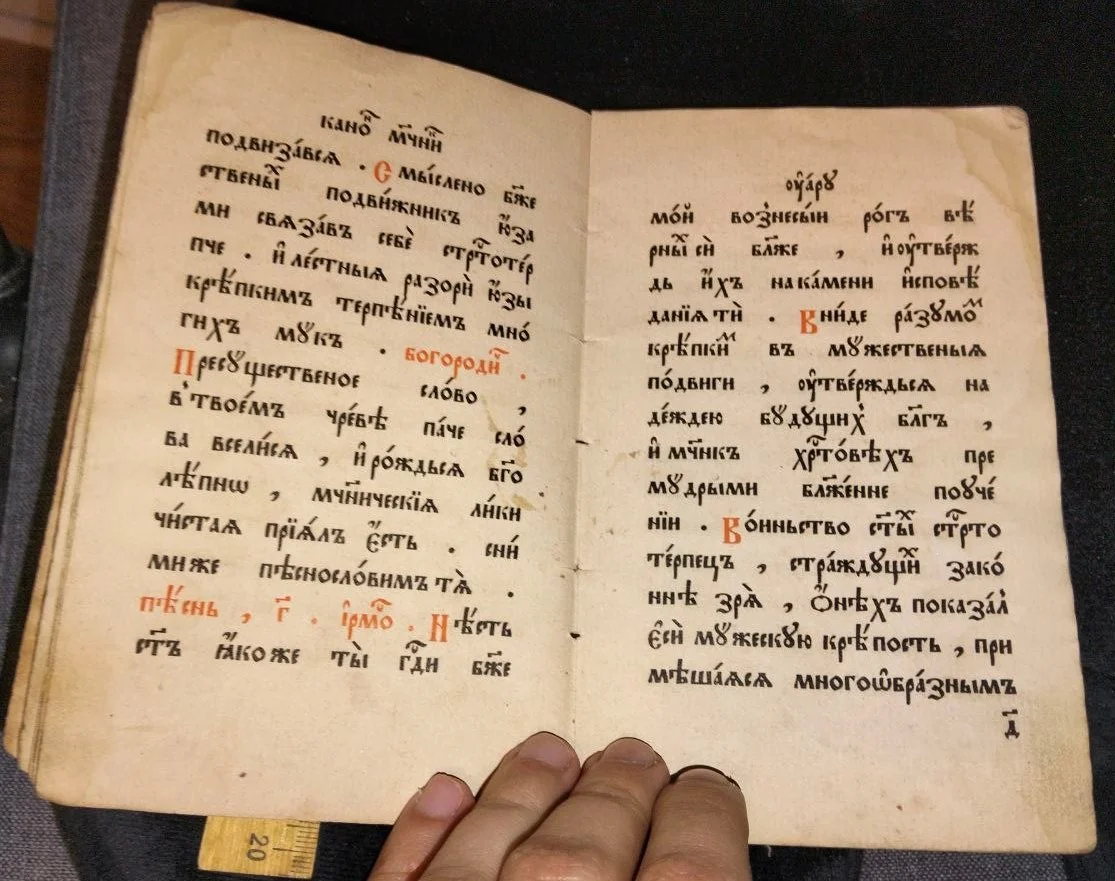 кано҇н мч҃нн
подвиза́вся . Смы́слено бж҃е
ствены̑ подви́жникъ ю҆́за
ми связа́въ себѐ стр҇тоте́р
пче . и҆ ле́стныя разорѝ ю҆́зы
крѣ́пкимъ терпѣ́нїемъ мно́
гихъ мꙋкъ . богороди҇ч .
Пресꙋщественое сло́во ,
в̾твое́мъ чре́вѣ па́че сло́
ва всели́ся , и҆ ро́ждься бг҃о
лѣ́пнѡ , мч҃ническїя ли́ки
чи́стая прїя́лъ є҆́сть . сни́
миже пѣснословимъ тѧ̀ .
пѣ́снь , г҃ . і҆рмо҇с . Нѣ́сть
ст҃ъ ꙗ҆́коже ты̀ гд҇и бж҃е
ᲂу҆а́рꙋ
мо́й воз̾несы́и ро́гъ вѣ́
рны́х сѝ бл҃же , и҆ ᲂу҆тве́рж
дь и҆́хъ на ка́мени и҆сповѣ́
данїя тѝ . Вни́де ра́зꙋмо́м
крѣ́пки́м въ мꙋ́жественыя
по́двиги , ᲂу҆тве́рждься на
де́ждею бꙋ́дꙋщих̾ бл҃гъ ,
и҆ мч҃нкъ хр҇то́вѣхъ пре
мꙋ́дрыми бл҃же́нне поꙋче́
нїи . Во́иньство ст҃ы́ стр҇то
те́рпецъ , стра́ждꙋщїй зако́
ннѣ зря̀ , Ѻ҆́нѣхъ показа́л
є҆сѝ мꙋ́жескꙋю крѣ́пость , при
мѣша́яся многоѡбра́знымъ
д҃
20